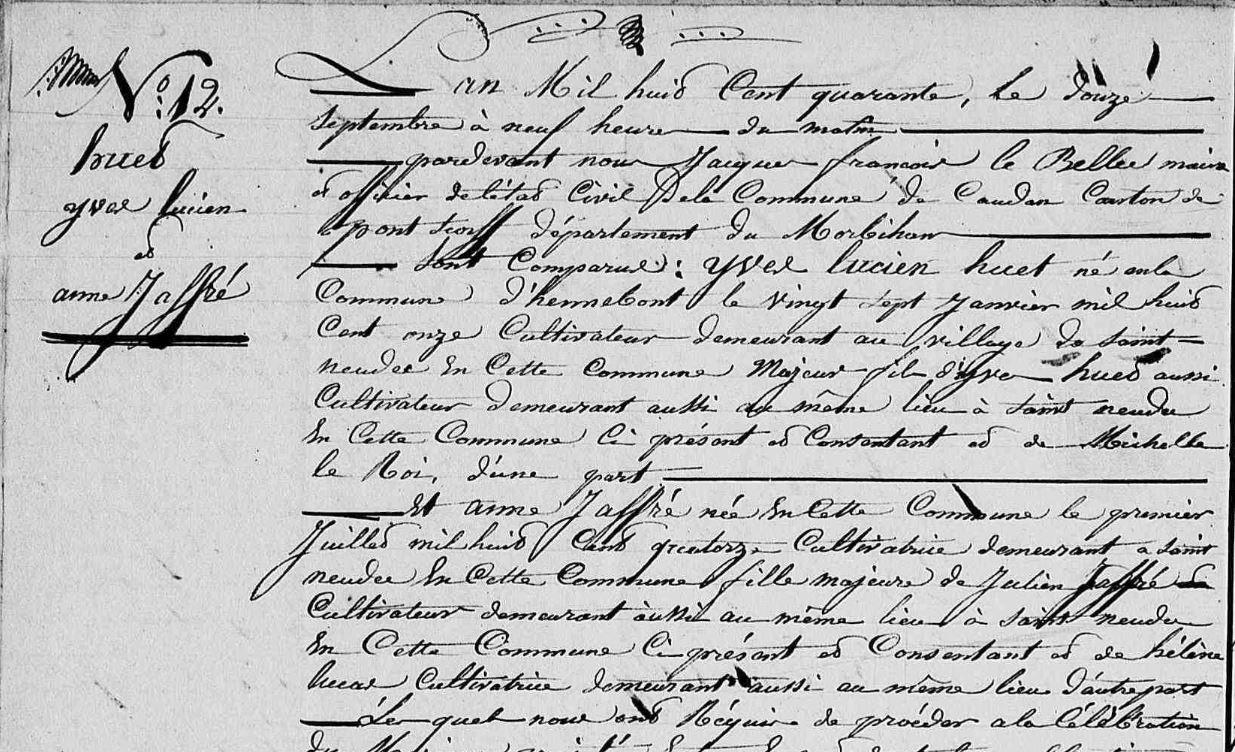 No. 12.
huet
yves lucien
et
anne Jaffré
L'an Mil huit Cent quarante, Le douze
Septembre à neuf heure du matin
pardevant nous Jacques francois le Bellec maire
et officier de l'état Civil De la Commune de Caudan Canton de
pont Scorff département du Morbihan
Sont Comparus : yves lucien huet né en la
Commune d'hennebont le vingt sept Janvier mil huit
Cent onze Cultivateur demeurant au village de saint
neudec En Cette Commune Majeur fils d'yves huet aussi
Cultivateur demeurant aussi au même lieu à saint neudec
En Cette Commune Ci présent et Consentant et de Michelle
le Roi, d'une part
Et anne Jaffré née En Cette Commune le premier
Juillet mil huit Cent quatorze Cultivatrice demeurant a saint
neudec En Cette Commune fille majeure de Julien Jaffré
Cultivateur demeurant aussi au même lieu à saint neudec
En Cette Commune Ci présent et Consentant et de hélène
lucas Cultivatrice demeurant aussi au même lieu d'autre part
Les quels nous ont Réquis de procéder a la Célébration